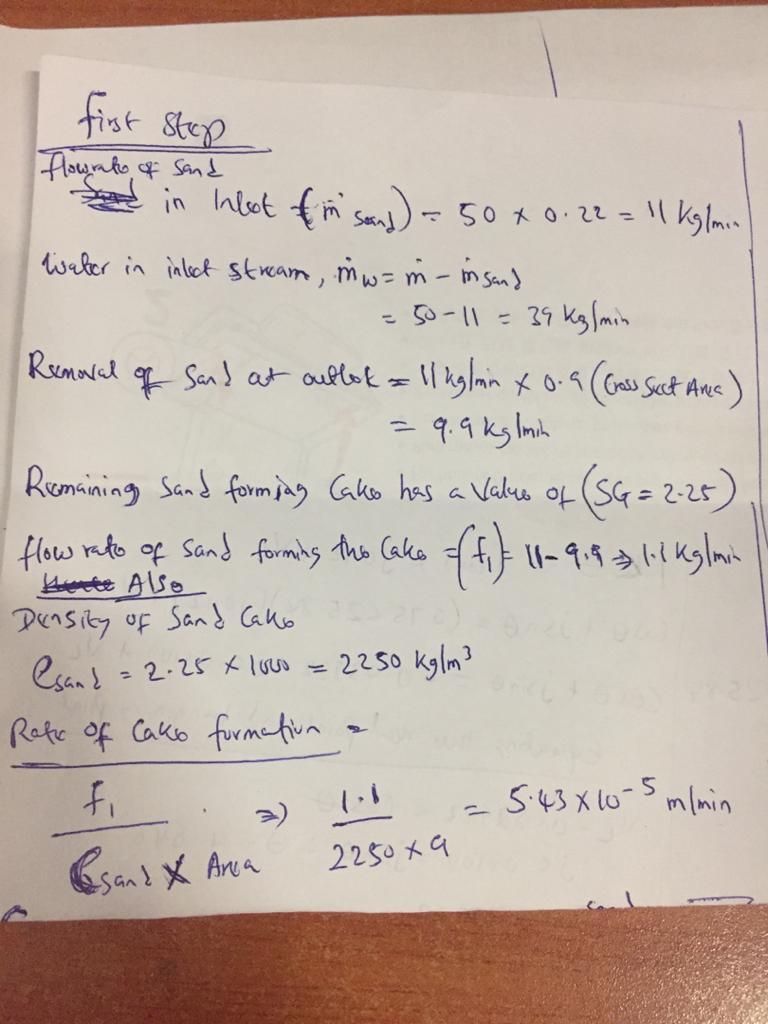 first step
flowrate of sand
in Inlet (ṁ sand) = 50 x 0.22 = 11 Kg/min
Water in inlet stream, ṁw = ṁ - ṁ sand
= 50 - 11 = 39 Kg/min
Removal of Sand at outlet = 11 kg/min x 0.9 (Cross Sect Area)
= 9.9 Kg/min
Remaining Sand forming Cake has a Value of (SG = 2.25)
flow rate of sand forming the Cake = (f₁) = 11 - 9.9 ⇒ 1.1 Kg/min
Also
Density of Sand Cake
ρsand = 2.25 x 1000 = 2250 Kg/m³
Rate of Cake formation =
f₁ / ρsand x Area ⇒ 1.1 / 2250 x 9 = 5.43 x 10⁻⁵ m/min